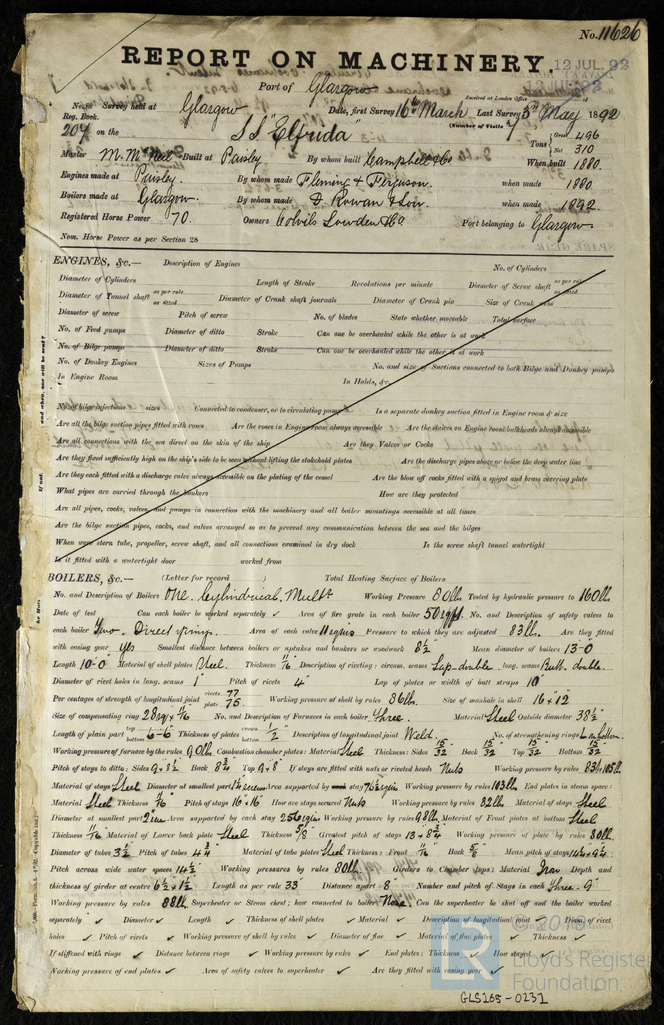 No. 11626
REPORT ON MACHINERY.
12 JUL. 92
Port of Glasgow
Received at London Office 18
No. in Survey held at Glasgow Date, first Survey 16th March Last Survey 3rd May 1892
Reg. Book. (Number of Visits 7)
204 on the S.S. "Elfrida" Tons Gross 496 Net 310
Master M. McNeil Built at Paisley By whom built Campbell & Co When built 1880.
Engines made at Paisley. By whom made Fleming & Ferguson. when made 1880
Boilers made at Glasgow. By whom made D. Rowan & Son. when made 1892.
Registered Horse Power 70. Owners Colvils Lowden & Co Port belonging to Glasgow
Nom. Horse Power as per Section 28
ENGINES, &c.— Description of Engines No. of Cylinders
Diameter of Cylinders Length of Stroke Revolutions per minute Diameter of Screw shaft as per rule as fitted
Diameter of Tunnel shaft as per rule as fitted Diameter of Crank shaft journals Diameter of Crank pin Size of Crank webs
Diameter of screw Pitch of screw No. of blades State whether moveable Total surface
No. of Feed pumps Diameter of ditto Stroke Can one be overhauled while the other is at work
No. of Bilge pumps Diameter of ditto Stroke Can one be overhauled while the other is at work
No. of Donkey Engines Sizes of Pumps No. and size of Suctions connected to both Bilge and Donkey pumps
In Engine Room In Holds, &c.
No. of bilge injections sizes Connected to condenser, or to circulating pump Is a separate donkey suction fitted in Engine room & size
Are all the bilge suction pipes fitted with roses Are the roses in Engine room always accessible Are the sluices on Engine room bulkheads always accessible
Are all connections with the sea direct on the skin of the ship Are they Valves or Cocks
Are they fixed sufficiently high on the ship's side to be seen without lifting the stokehold plates Are the discharge pipes above or below the deep water line
Are they each fitted with a discharge valve always accessible on the plating of the vessel Are the blow off cocks fitted with a spigot and brass covering plate
What pipes are carried through the bunkers How are they protected
Are all pipes, cocks, valves, and pumps in connection with the machinery and all boiler mountings accessible at all times
Are the bilge suction pipes, cocks, and valves arranged so as to prevent any communication between the sea and the bilges
When were stern tube, propeller, screw shaft, and all connections examined in dry dock Is the screw shaft tunnel watertight
Is it fitted with a watertight door worked from
BOILERS, &c.— (Letter for record ) Total Heating Surface of Boilers
No. and Description of Boilers One. Cylindrical. Mult. Working Pressure 80lb Tested by hydraulic pressure to 160lb
Date of test Can each boiler be worked separately ✓ Area of fire grate in each boiler 50 sq ft. No. and Description of safety valves to
each boiler Two. Direct spring. Area of each valve 11 sq ins Pressure to which they are adjusted 83lb. Are they fitted
with easing gear yes Smallest distance between boilers or uptakes and bunkers or woodwork 8½ Mean diameter of boilers 13-0
Length 10-0 Material of shell plates Steel. Thickness 11/16 Description of riveting: circum. seams Lap-double. long. seams Butt. double.
Diameter of rivet holes in long. seams 1" Pitch of rivets 4" Lap of plates or width of butt straps 10"
Per centages of strength of longitudinal joint rivets 77 plate 75. Working pressure of shell by rules 86lb. Size of manhole in shell 16 x 12
Size of compensating ring 28 sq x 11/16 No. and Description of Furnaces in each boiler Three. Material Steel Outside diameter 38½
Length of plain part top bottom 6-6 Thickness of plates crown bottom ½ Description of longitudinal joint Weld. No. of strengthening rings
Working pressure of furnace by the rules 90lb. Combustion chamber plates: Material Steel Thickness: Sides 15/32 Back 15/32 Top 15/32 Bottom 15/32
Pitch of stays to ditto: Sides 9 x 8½ Back 8¾ Top 9 x 8" If stays are fitted with nuts or riveted heads Nuts Working pressure by rules 83lb & 105lb
Material of stays Steel Diameter at smallest part Area supported by each stay 76½ sq ins Working pressure by rules 103lb End plates in steam space:
Material Steel Thickness Pitch of stays 16" x 16" How are stays secured Nuts Working pressure by rules 82lb Material of stays Steel
Diameter at smallest part Area supported by each stay 256 sq ins Working pressure by rules 98lb Material of Front plates at bottom Steel
Thickness 11/16 Material of Lower back plate Steel Thickness 5/8 Greatest pitch of stays 13 x 8¾ Working pressure of plate by rules 80lb.
Diameter of tubes 3½ Pitch of tubes 4¾ Material of tube plates Steel Thickness: Front 11/16 Back 5/8 Mean pitch of stays
Pitch across wide water spaces 14½ Working pressures by rules 80lb Girders to Chamber tops: Material Iron Depth and
thickness of girder at centre 6½ x 1½ Length as per rule 33" Distance apart 8" Number and pitch of Stays in each Three. 9"
Working pressure by rules 88lb Superheater or Steam chest; how connected to boiler None Can the superheater be shut off and the boiler worked
separately ✓ Diameter ✓ Length ✓ Thickness of shell plates ✓ Material ✓ Description of longitudinal joint ✓ Diam. of rivet
holes ✓ Pitch of rivets ✓ Working pressure of shell by rules ✓ Diameter of flue ✓ Material of flue plates ✓ Thickness ✓
If stiffened with rings ✓ Distance between rings ✓ Working pressure by rules ✓ End plates: Thickness ✓ How stayed ✓
Working pressure of end plates ✓ Area of safety valves to superheater ✓ Are they fitted with easing gear ✓
© 2019
LR
Lloyd's Register
Foundation
GLS265-0231